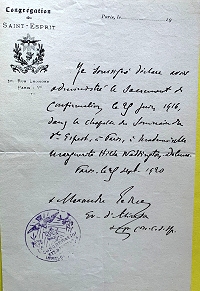 Congrégation
DU
SAINT-ESPRIT
30, RUE LHOMOND
PARIS
Paris, le 19
Je soussigné déclare avoir
administré le Sacrement de
Confirmation, le 29 juin 1916,
dans la chapelle du Séminaire du
St Esprit, à Paris, à Mademoiselle
Marguerite Hilda Waddington
Paris, le 25 sept. 1920
+ Alexandre Le Roy
Ev. d'Alinda